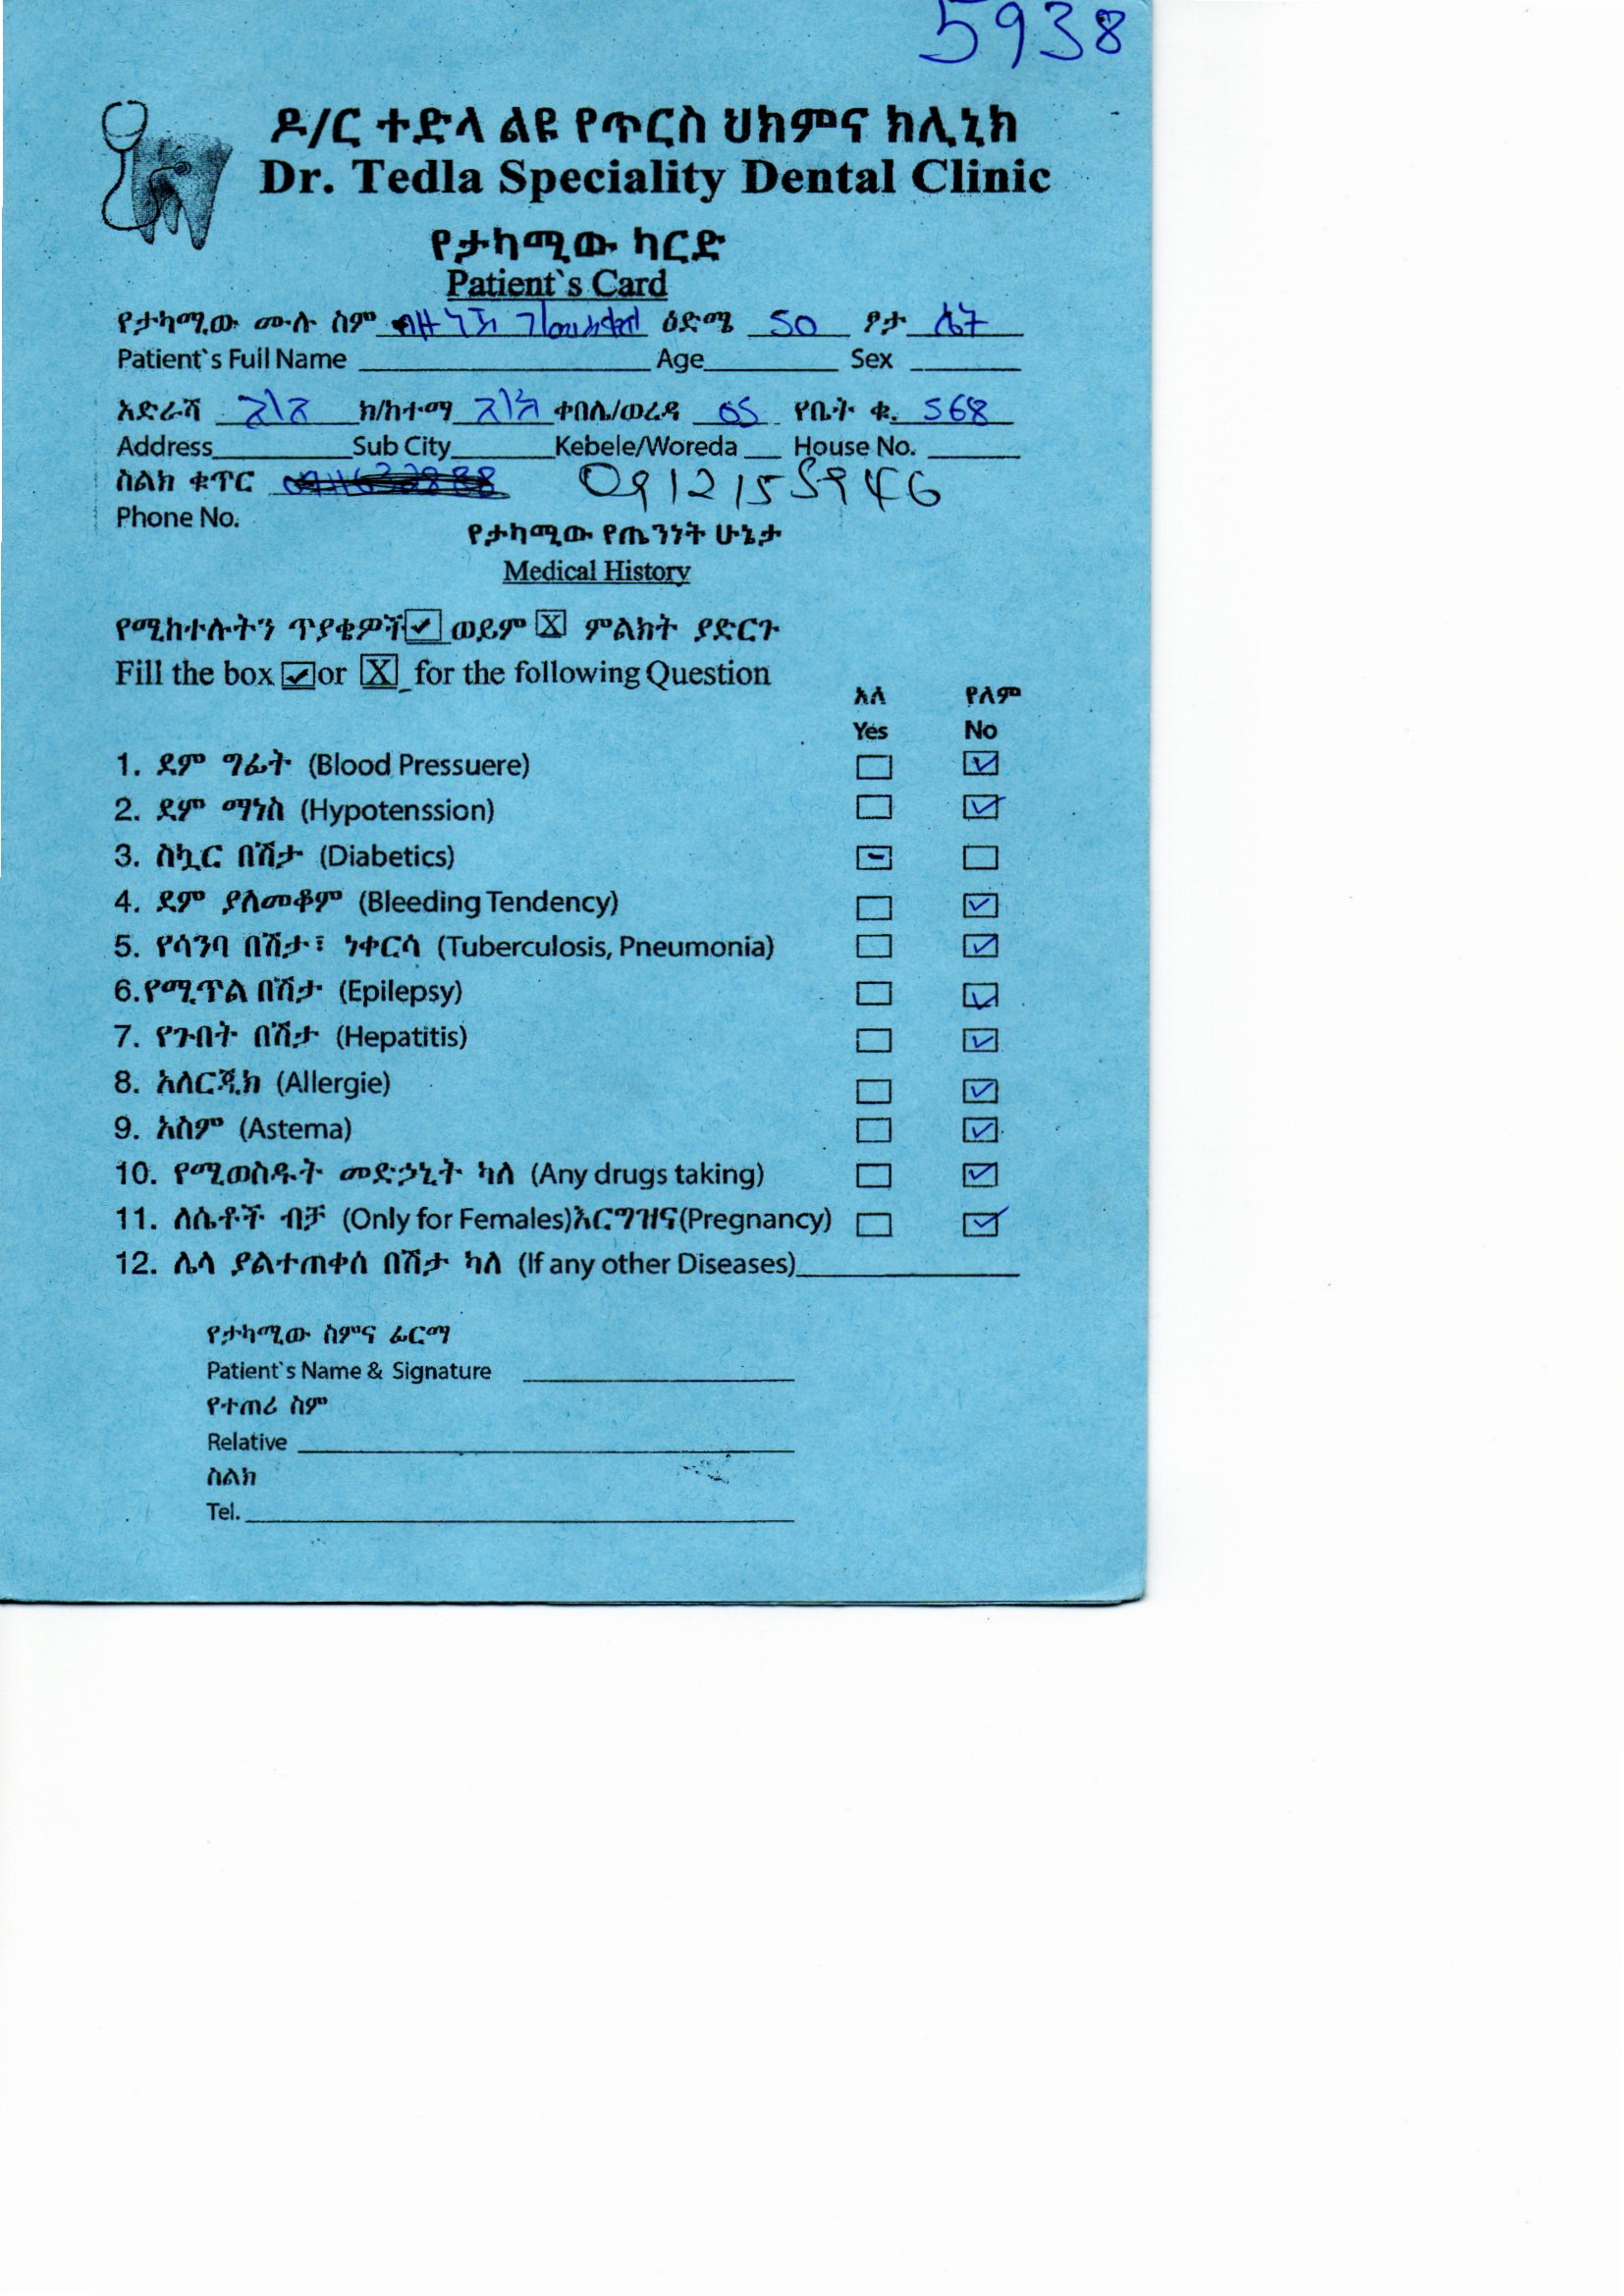 5938
ዶ/ር ተድላ ልዩ የጥርስ ህክምና ክሊኒክ
Dr. Tedla Speciality Dental Clinic
የታካሚው ካርድ
Patient`s Card
የታካሚው ሙሉ ስም ብዙነሽ ገ/መስቀል ዕድሜ 50 ፆታ ሴት
Patient`s Full Name Age Sex
አድራሻ ክ/ከተማ ቀበሌ/ወረዳ 05 የቤት ቁ. 568
Address Sub City Kebele/Woreda House No.
ስልክ ቁጥር 0912155946
Phone No.
የታካሚው የጤንነት ሁኔታ
Medical History
የሚከተሉትን ጥያቄዎች ✓ ወይም X ምልክት ያድርጉ
Fill the box ✓ or X for the following Question
አለ የለም
Yes No
1. ደም ግፊት (Blood Pressuere) ✓
2. ደም ማነስ (Hypotenssion) ✓
3. ስኳር በሽታ (Diabetics) -
4. ደም ያለመቆም (Bleeding Tendency) ✓
5. የሳንባ በሽታ፣ ነቀርሳ (Tuberculosis, Pneumonia) ✓
6.የሚጥል በሽታ (Epilepsy) ✓
7. የጉበት በሽታ (Hepatitis) ✓
8. አለርጂክ (Allergie) ✓
9. አስም (Astema) ✓
10. የሚወስዱት መድኃኒት ካለ (Any drugs taking) ✓
11. ለሴቶች ብቻ (Only for Females)እርግዝና(Pregnancy) ✓
12. ሌላ ያልተጠቀሰ በሽታ ካለ (If any other Diseases)
የታካሚው ስምና ፊርማ
Patient`s Name & Signature
የተጠሪ ስም
Relative
ስልክ
Tel.